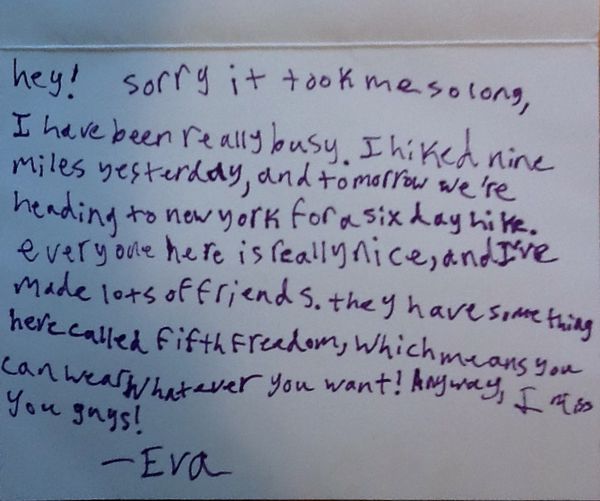 hey! sorry it took me so long,
I have been really busy. I hiked nine
miles yesterday, and tomorrow we're
heading to new york for a six day hike.
everyone here is really nice, and I've
made lots of friends. they have something
here called fifth freedom, which means you
can wear whatever you want! Anyway, I miss
you guys!
—Eva